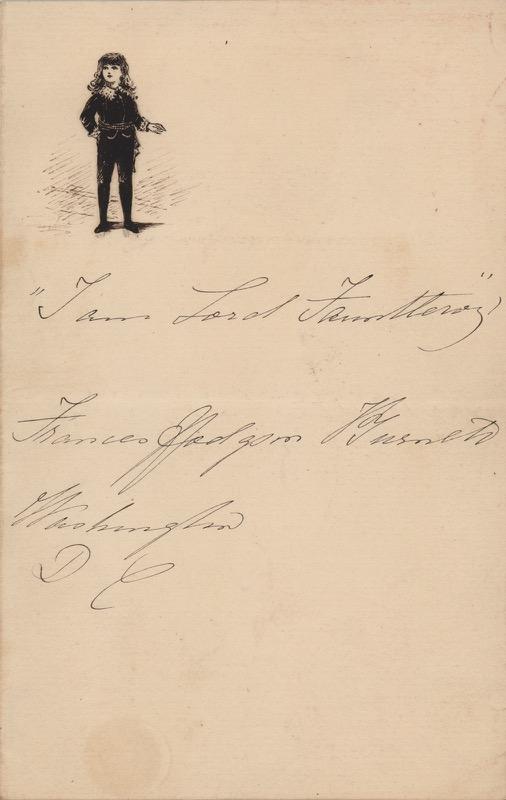 "I am Lord Fauntleroy"
Frances Hodgson Burnett
Washington
D C